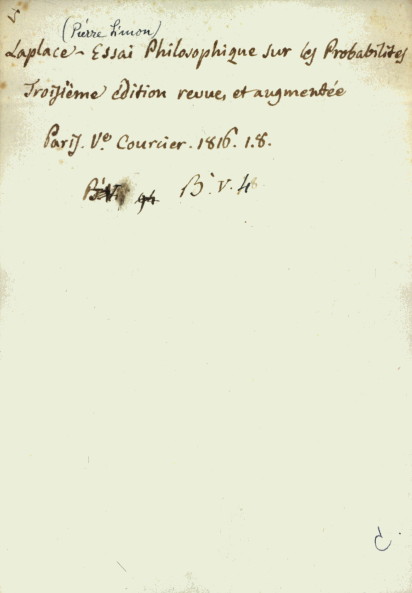 (Pierre Simon)
Laplace - Essai Philosophique sur les Probabilites
Troisième édition revue, et augmentée
Paris. Vᵉ Courcier. 1816. 1.8.
B. V. 48